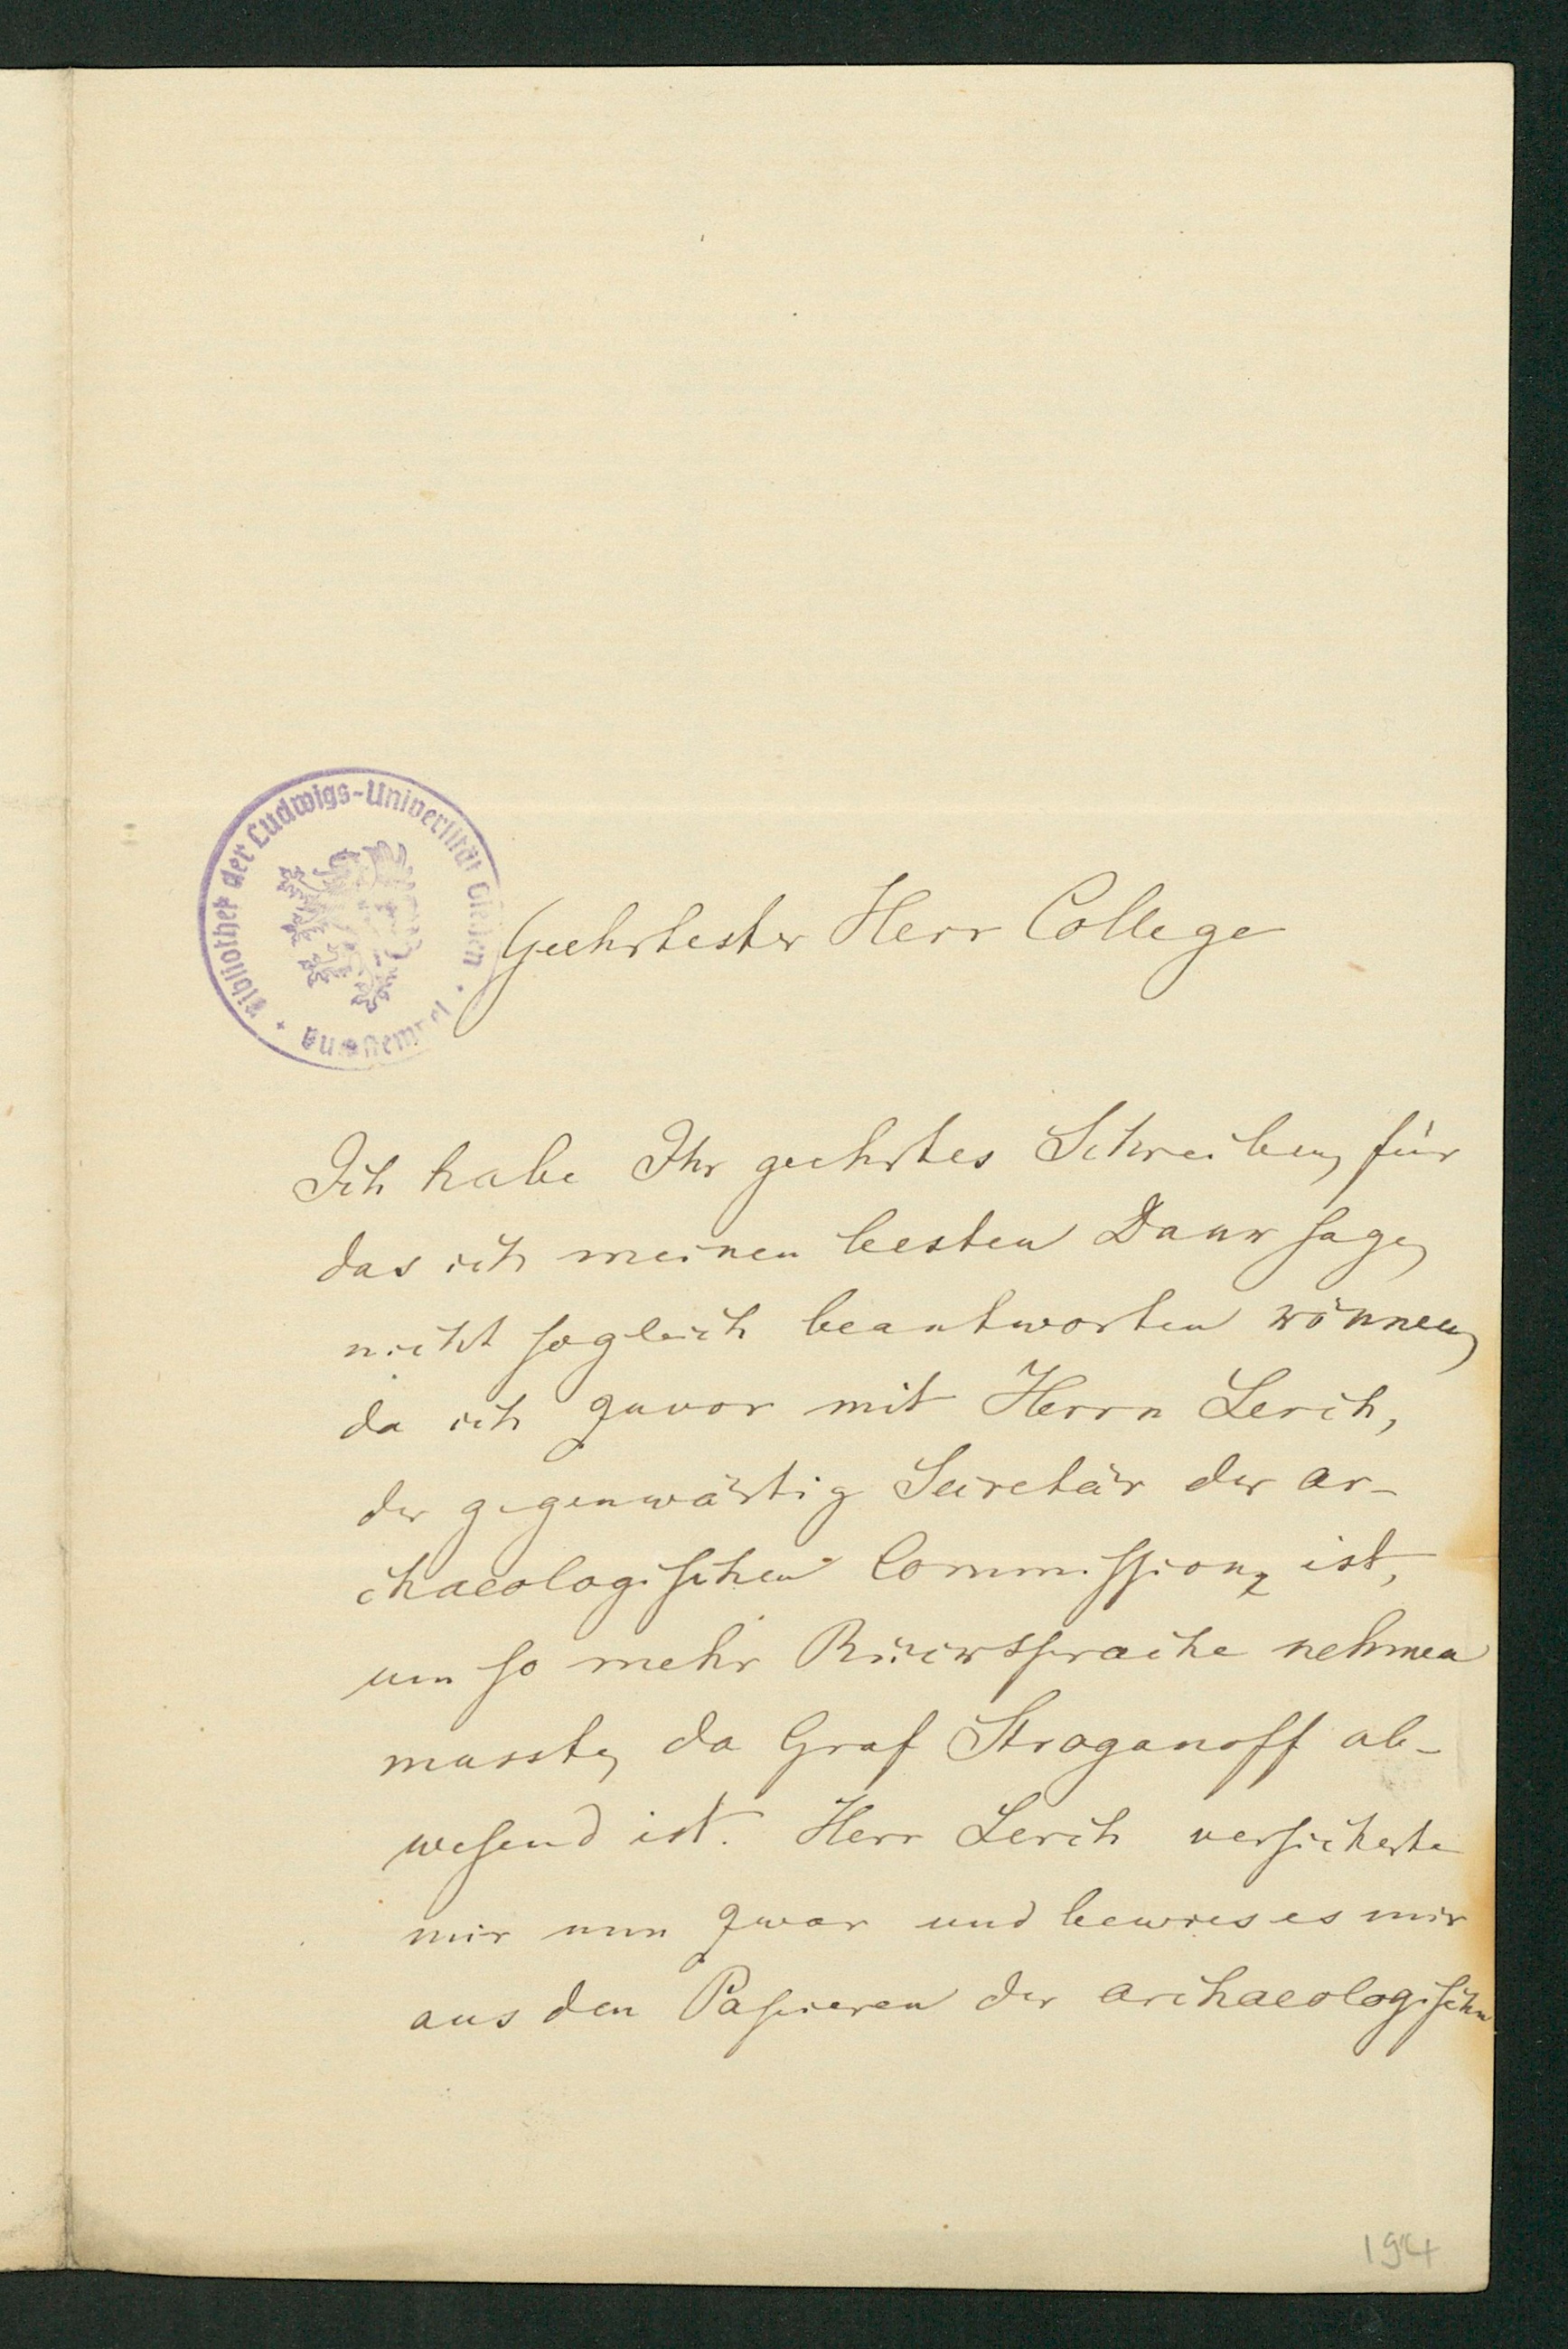 Bibliothek der Ludwigs-Universität Gießen
Geehrtester Herr College
Ich habe Ihr geehrtes Schreiben, für
das ich meinen besten Dank sage,
nicht sogleich beantworten können,
da ich zuvor mit Herrn Lerch,
der gegenwärtig Secretär der ar-
chaeologischen Commission ist,
um so mehr Rücksprache nehmen
musste, da Graf Stroganoff ab-
wesend ist. Herr Lerch versicherte
mir nun zwar und bewies es mir
aus den Papieren der archaeologischen
194